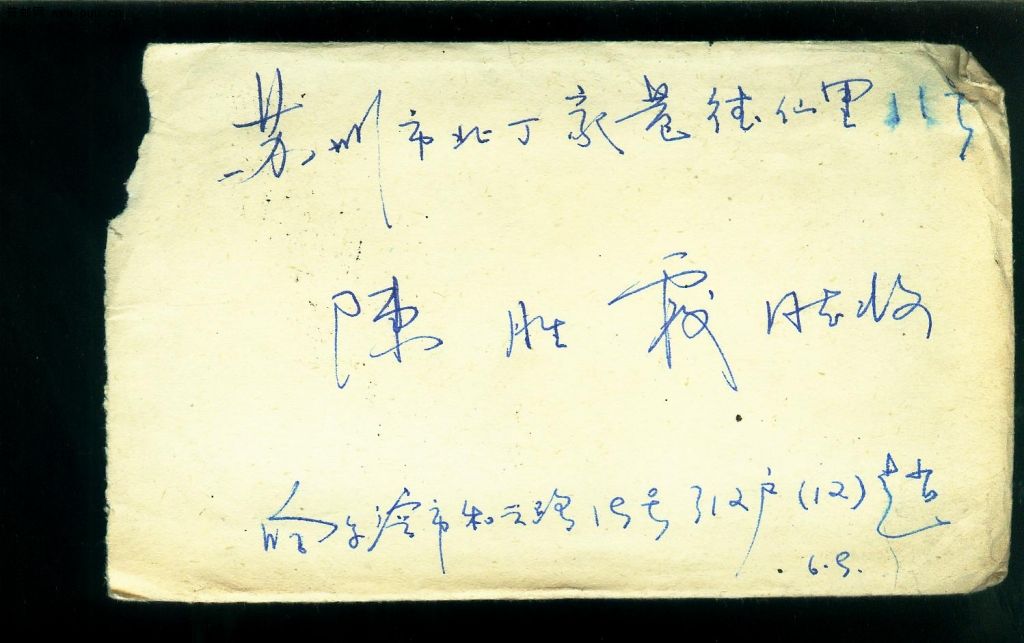 苏州市北丁家巷德仙里11号
陳胜霞 同志收
哈尔滨市和兴路15号312户(12)赵
6.9.